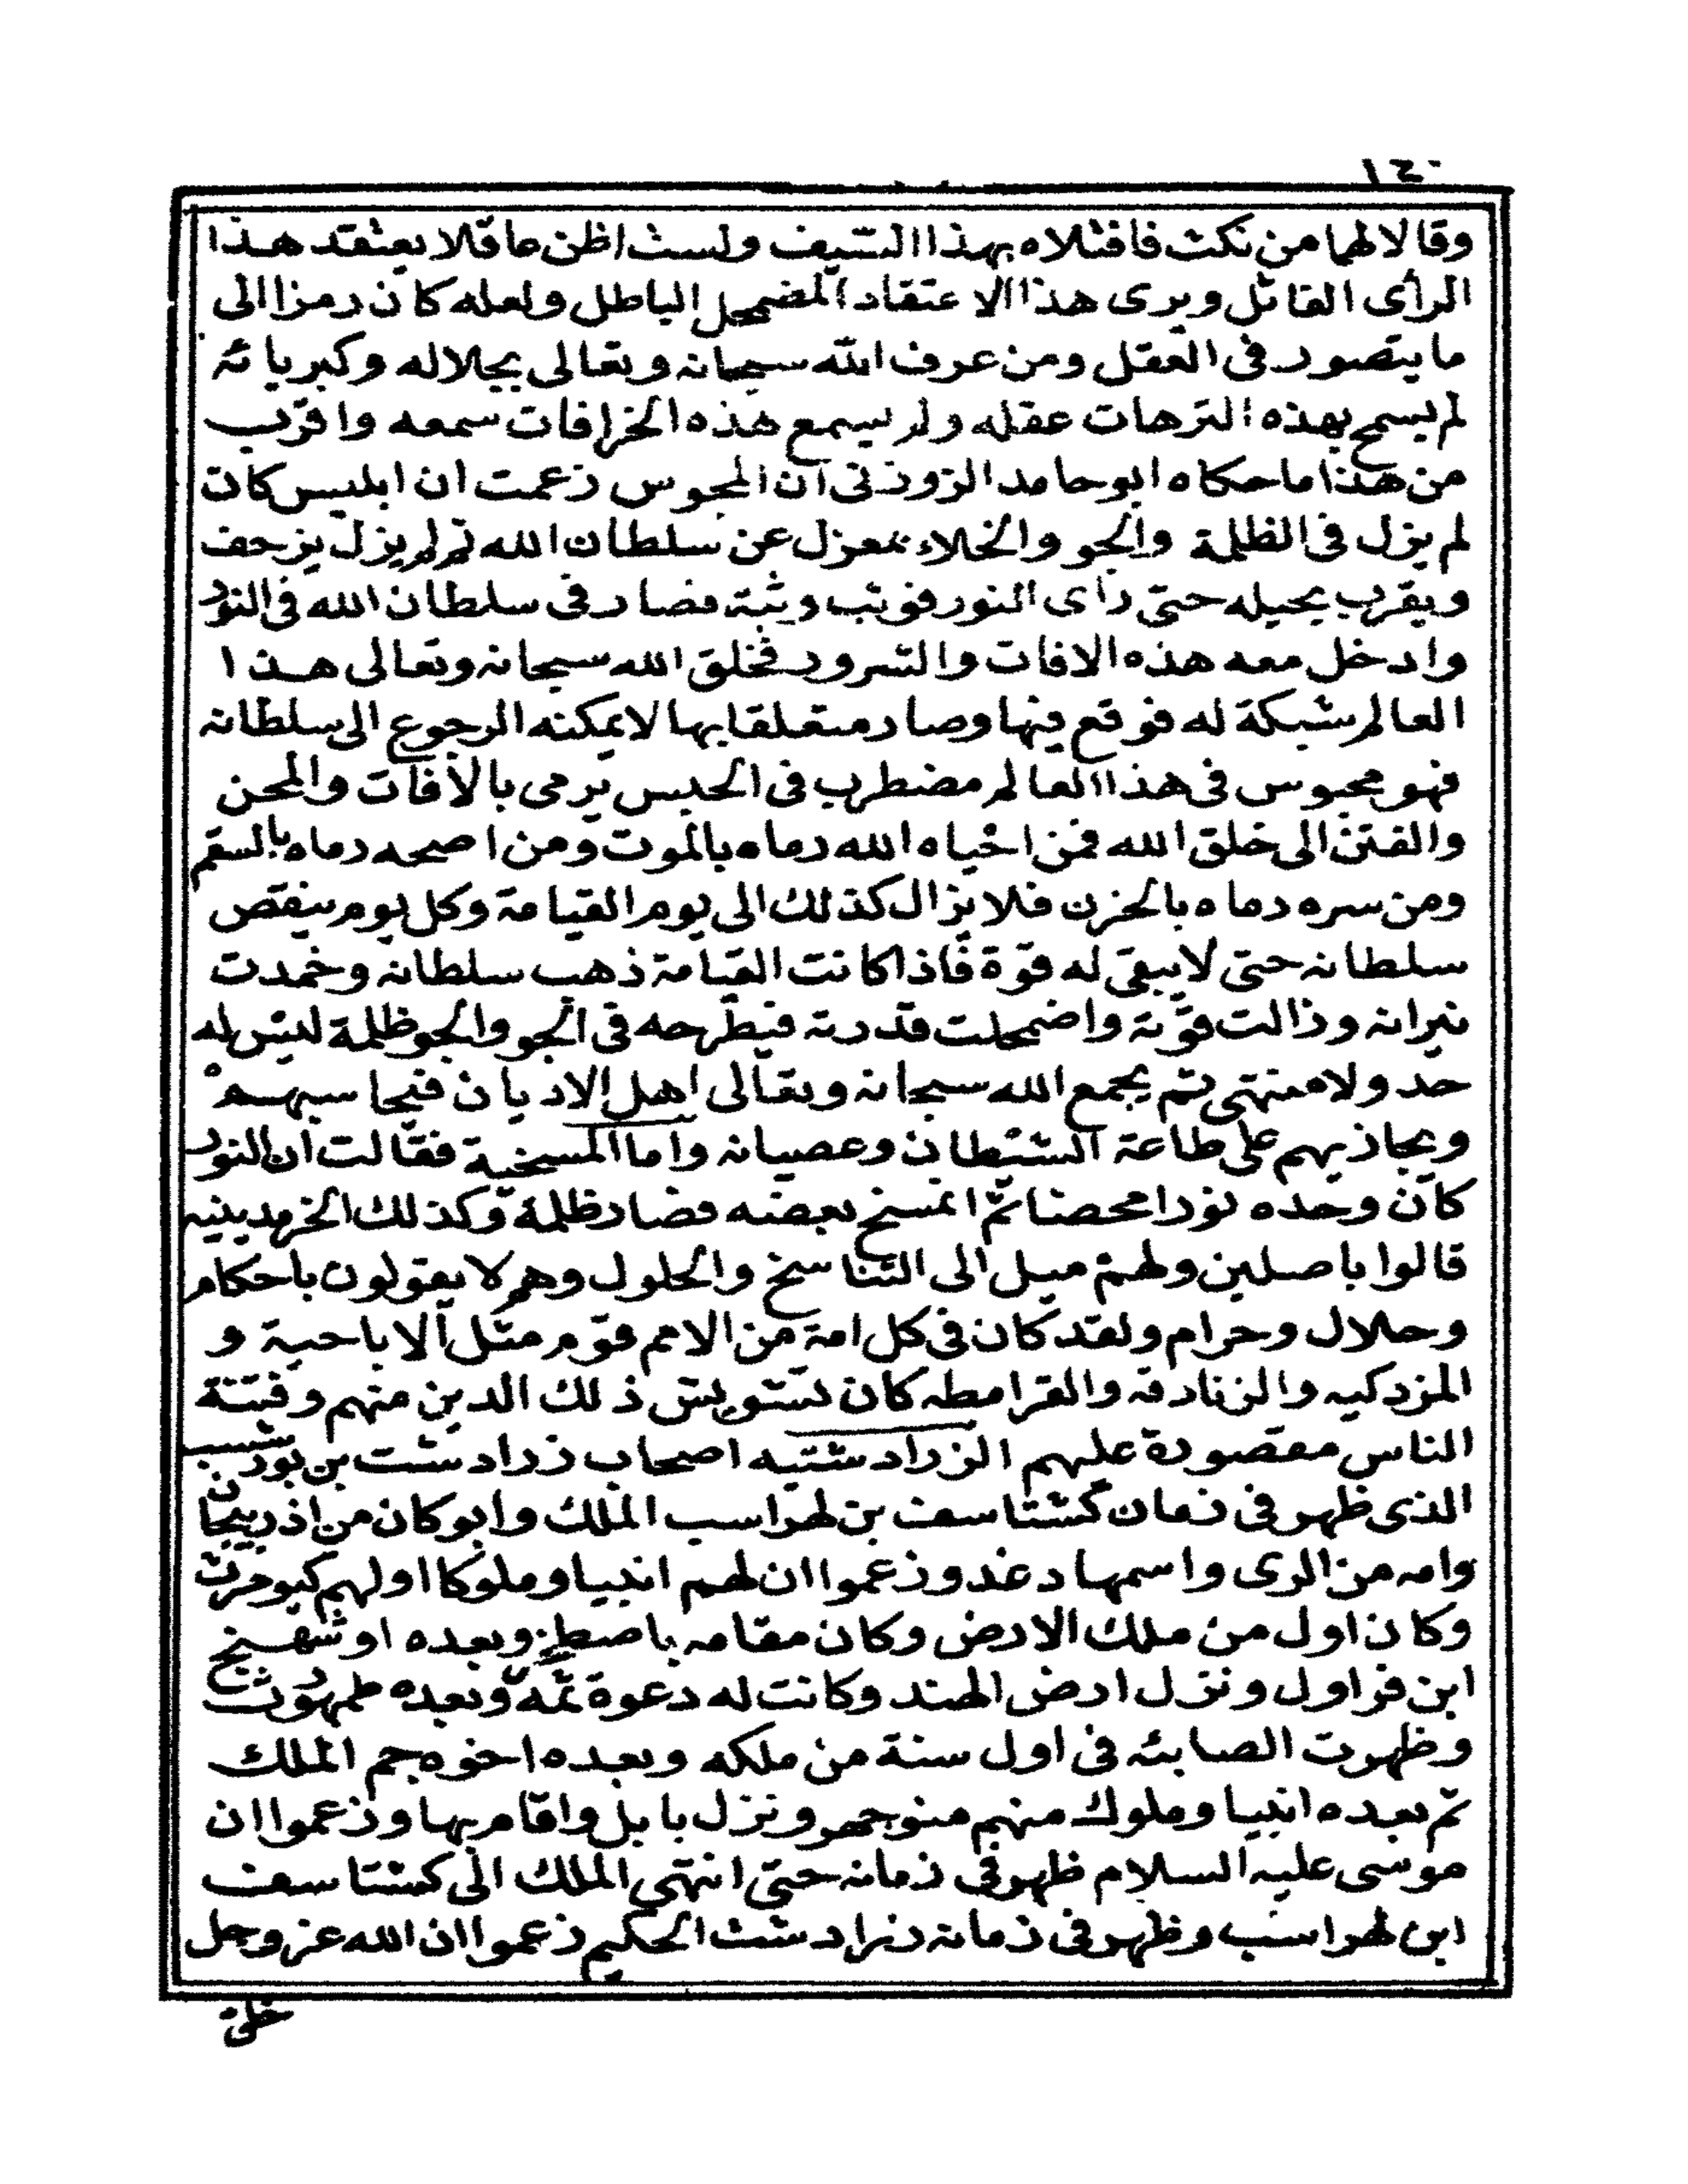 ١٤٠
وقالا لهما من نكث فاقتلاه بهذا السيف ولست اظن عاقلا يعتقد هذا
الرأى القائل ويرى هذا الاعتقاد المضمحل الباطل ولعله كان رمزا الى
ما يتصور فى العقل ومن عرف الله سبحانه وتعالى بجلاله وكبريائه
لم يسمح بهذه الترهات عقله ولم يسمع هذه الخرافات سمعه واقرب
من هذا ما حكاه ابو حامد الزوزنى ان المجوس زعمت ان ابليس كان
لم يزل فى الظلمة والجو والخلاء بمعزل عن سلطان الله ثم لم يزل يزحف
ويقرب بحيله حتى رأى النور فوثب وثبة فصار فى سلطان الله فى النور
وادخل معه هذه الافات والشرور فخلق الله سبحانه وتعالى هذا
العالم شبكة له فوقع فيها وصار متعلقا بها لا يمكنه الرجوع الى سلطانه
فهو محبوس فى هذا العالم مضطرب فى الحبس يرمى بالافات والمحن
والفتن الى خلق الله فمن احياه الله رماه بالموت ومن اصحه رماه بالسقم
ومن سره رماه بالحزن فلا يزال كذلك الى يوم القيامة وكل يوم ينقص
سلطانه حتى لا يبقى له قوة فاذا كانت القيامة ذهب سلطانه وخمدت
نيرانه وزالت قوته واضمحلت قدرته فيطرحه فى الجو والجو ظلمة ليس له
حد ولا منتهى ثم يجمع الله سبحانه وتعالى اهل الاديان فيحاسبهم
ويجازيهم على طاعة الشيطان وعصيانه واما المسخية فقالت ان النور
كان وحده نورا محضا ثم انمسخ بعضه فصار ظلمة وكذلك الخرمدينيه
قالوا باصلين ولهم ميل الى التناسخ والحلول وهم لا يقولون باحكام
وحلال وحرام ولقد كان فى كل امة من الامم قوم مثل الاباحية و
المزدكيه والزنادقه والقرامطه كان تشويش ذلك الدين منهم وفتنة
الناس مقصورة عليهم الزرادشتيه اصحاب زرادشت بن بورشسب
الذى ظهر فى زمان كشتاسف بن لهراسب الملك وابو كان من اذربيجان
وامه من الرى واسمها دغدو زعموا ان لهم انبيا وملوكا اولهم كيومرث
وكان اول من ملك الارض وكان مقامه باصطخر وبعده اوشهنج
ابن فراول ونزل ارض الهند وكانت له دعوة ثمه وبعده طمهورث
وظهرت الصابئه فى اول سنة من ملكه وبعده اخوه جم الملك
ثم بعده انبيا وملوك منهم منوجهر ونزل بابل واقام بها وزعموا ان
موسى عليه السلام ظهر فى زمانه حتى انتهى الملك الى كشتاسف
ابن لهراسب وظهر فى زمانه زرادشت الحكيم زعموا ان الله عز وجل
خلق